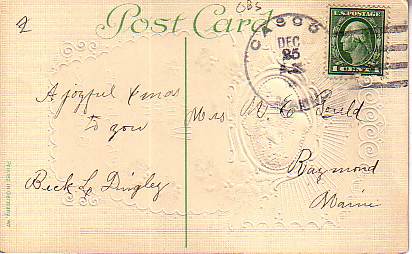 2
Post Card
CBS
CASCO
DEC
25
U.S. POSTAGE
1 CENT 1
A joyful Xmas
to you
Beck L. Dingley
Mrs W. C. Gould
Raymond
Maine